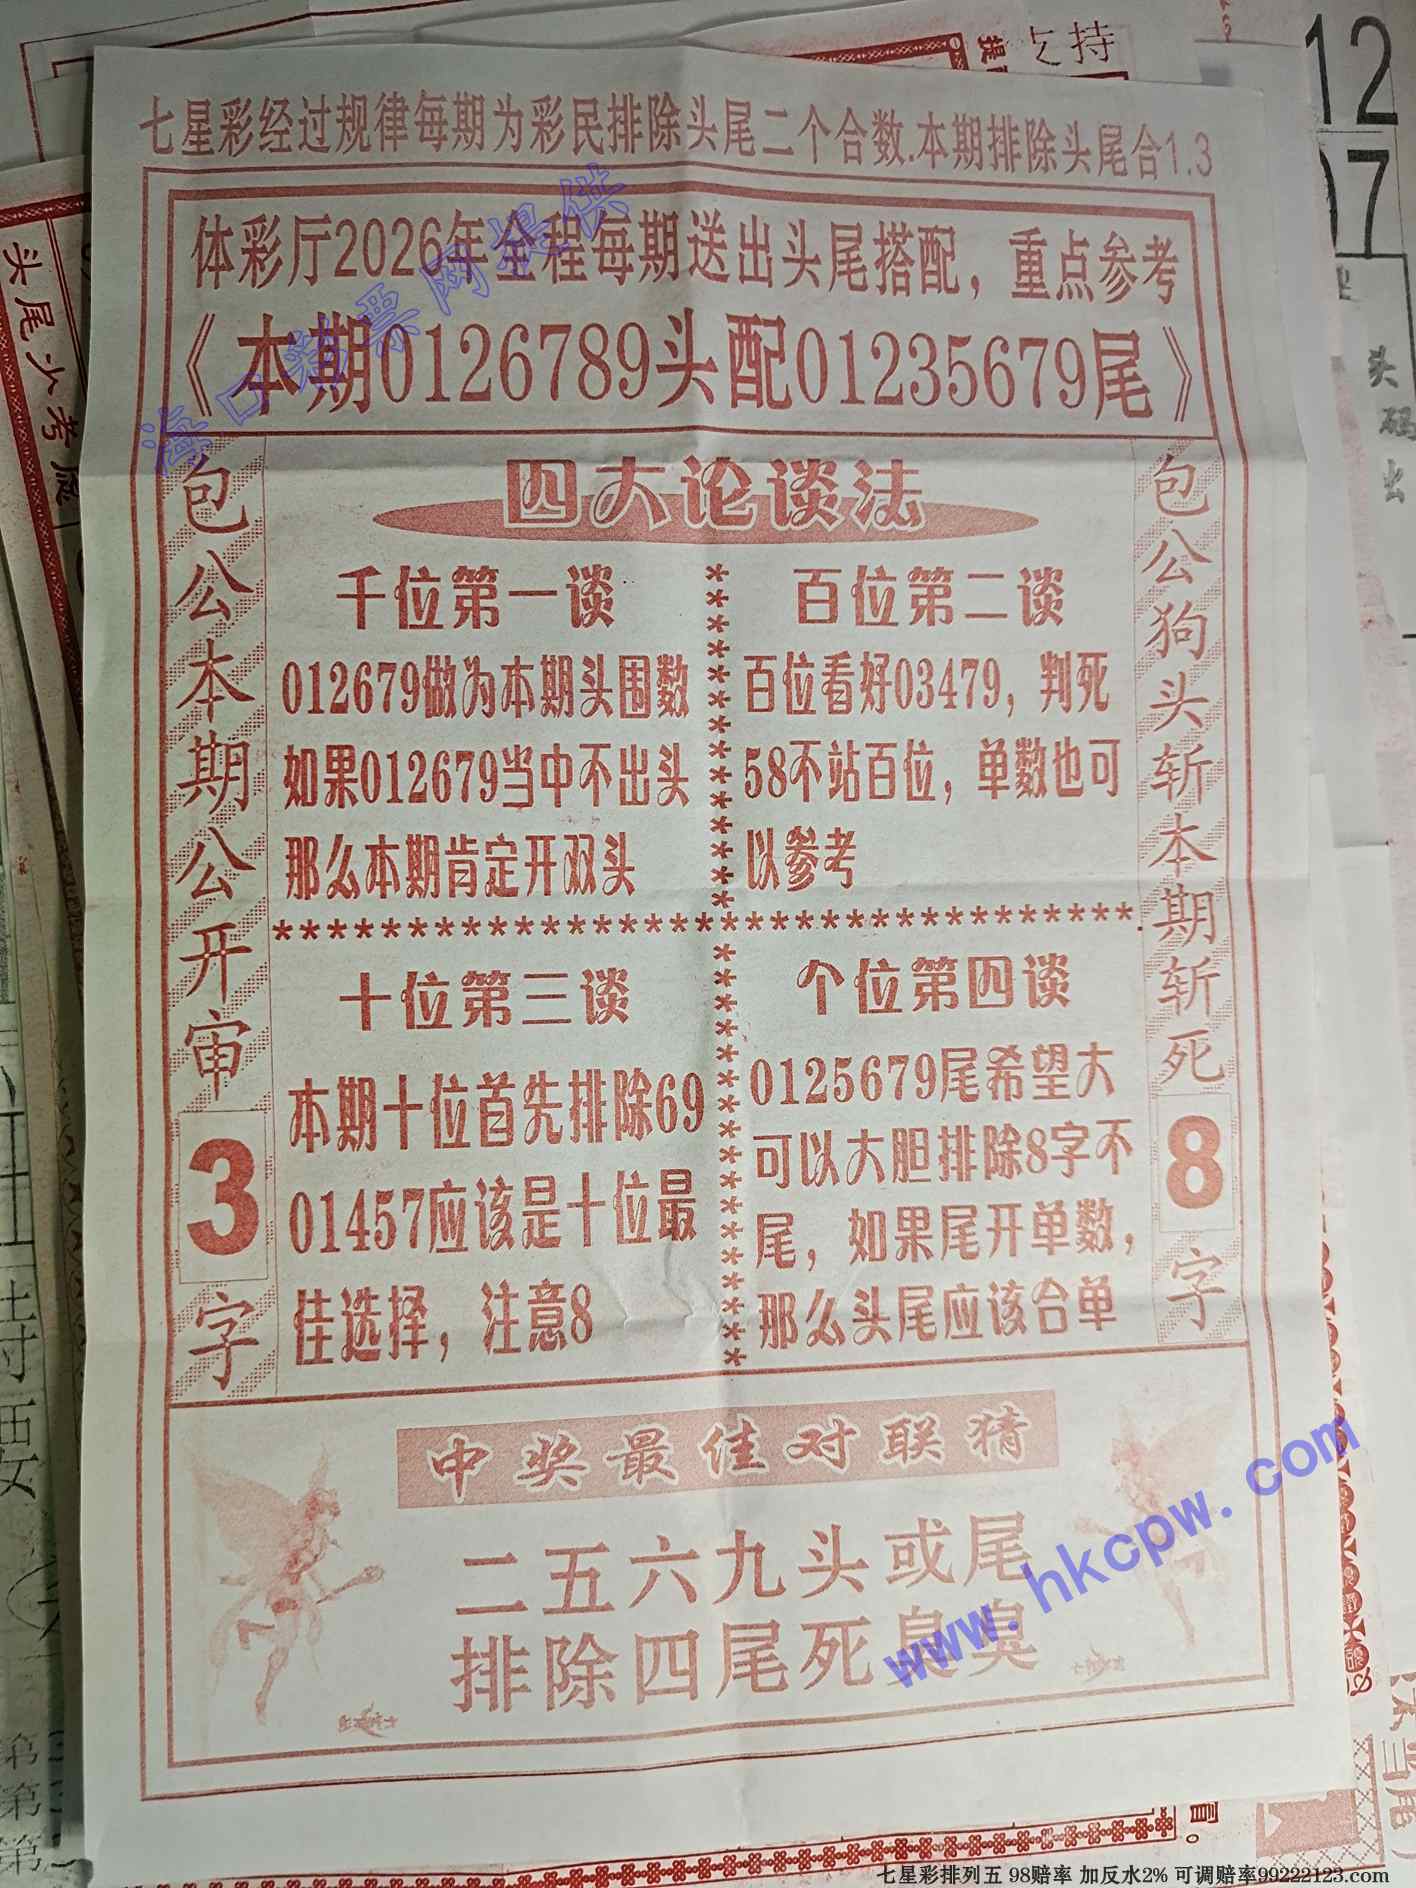 七星彩经过规律每期为彩民排除头尾二个合数.本期排除头尾合1.3
体彩厅2026年全程每期送出头尾搭配，重点参考
《本期0126789头配01235679尾》
包公本期公开审3字
四大论谈法
千位第一谈
012679做为本期头围数
如果012679当中不出头
那么本期肯定开双头
百位第二谈
百位看好03479，判死
58不站百位，单数也可
以参考
十位第三谈
本期十位首先排除69
01457应该是十位最
佳选择，注意8
个位第四谈
0125679尾希望大
可以大胆排除8字不
尾，如果尾开单数，
那么头尾应该合单
包公狗头斩本期斩死8字
中奖最佳对联猜
二五六九头或尾
排除四尾死臭臭
海口彩票网提供
www.hkcpw.com
七星彩排列五 98赔率 加反水2% 可调赔率99222123.com
支持
12
07
头码出
头尾少考虑